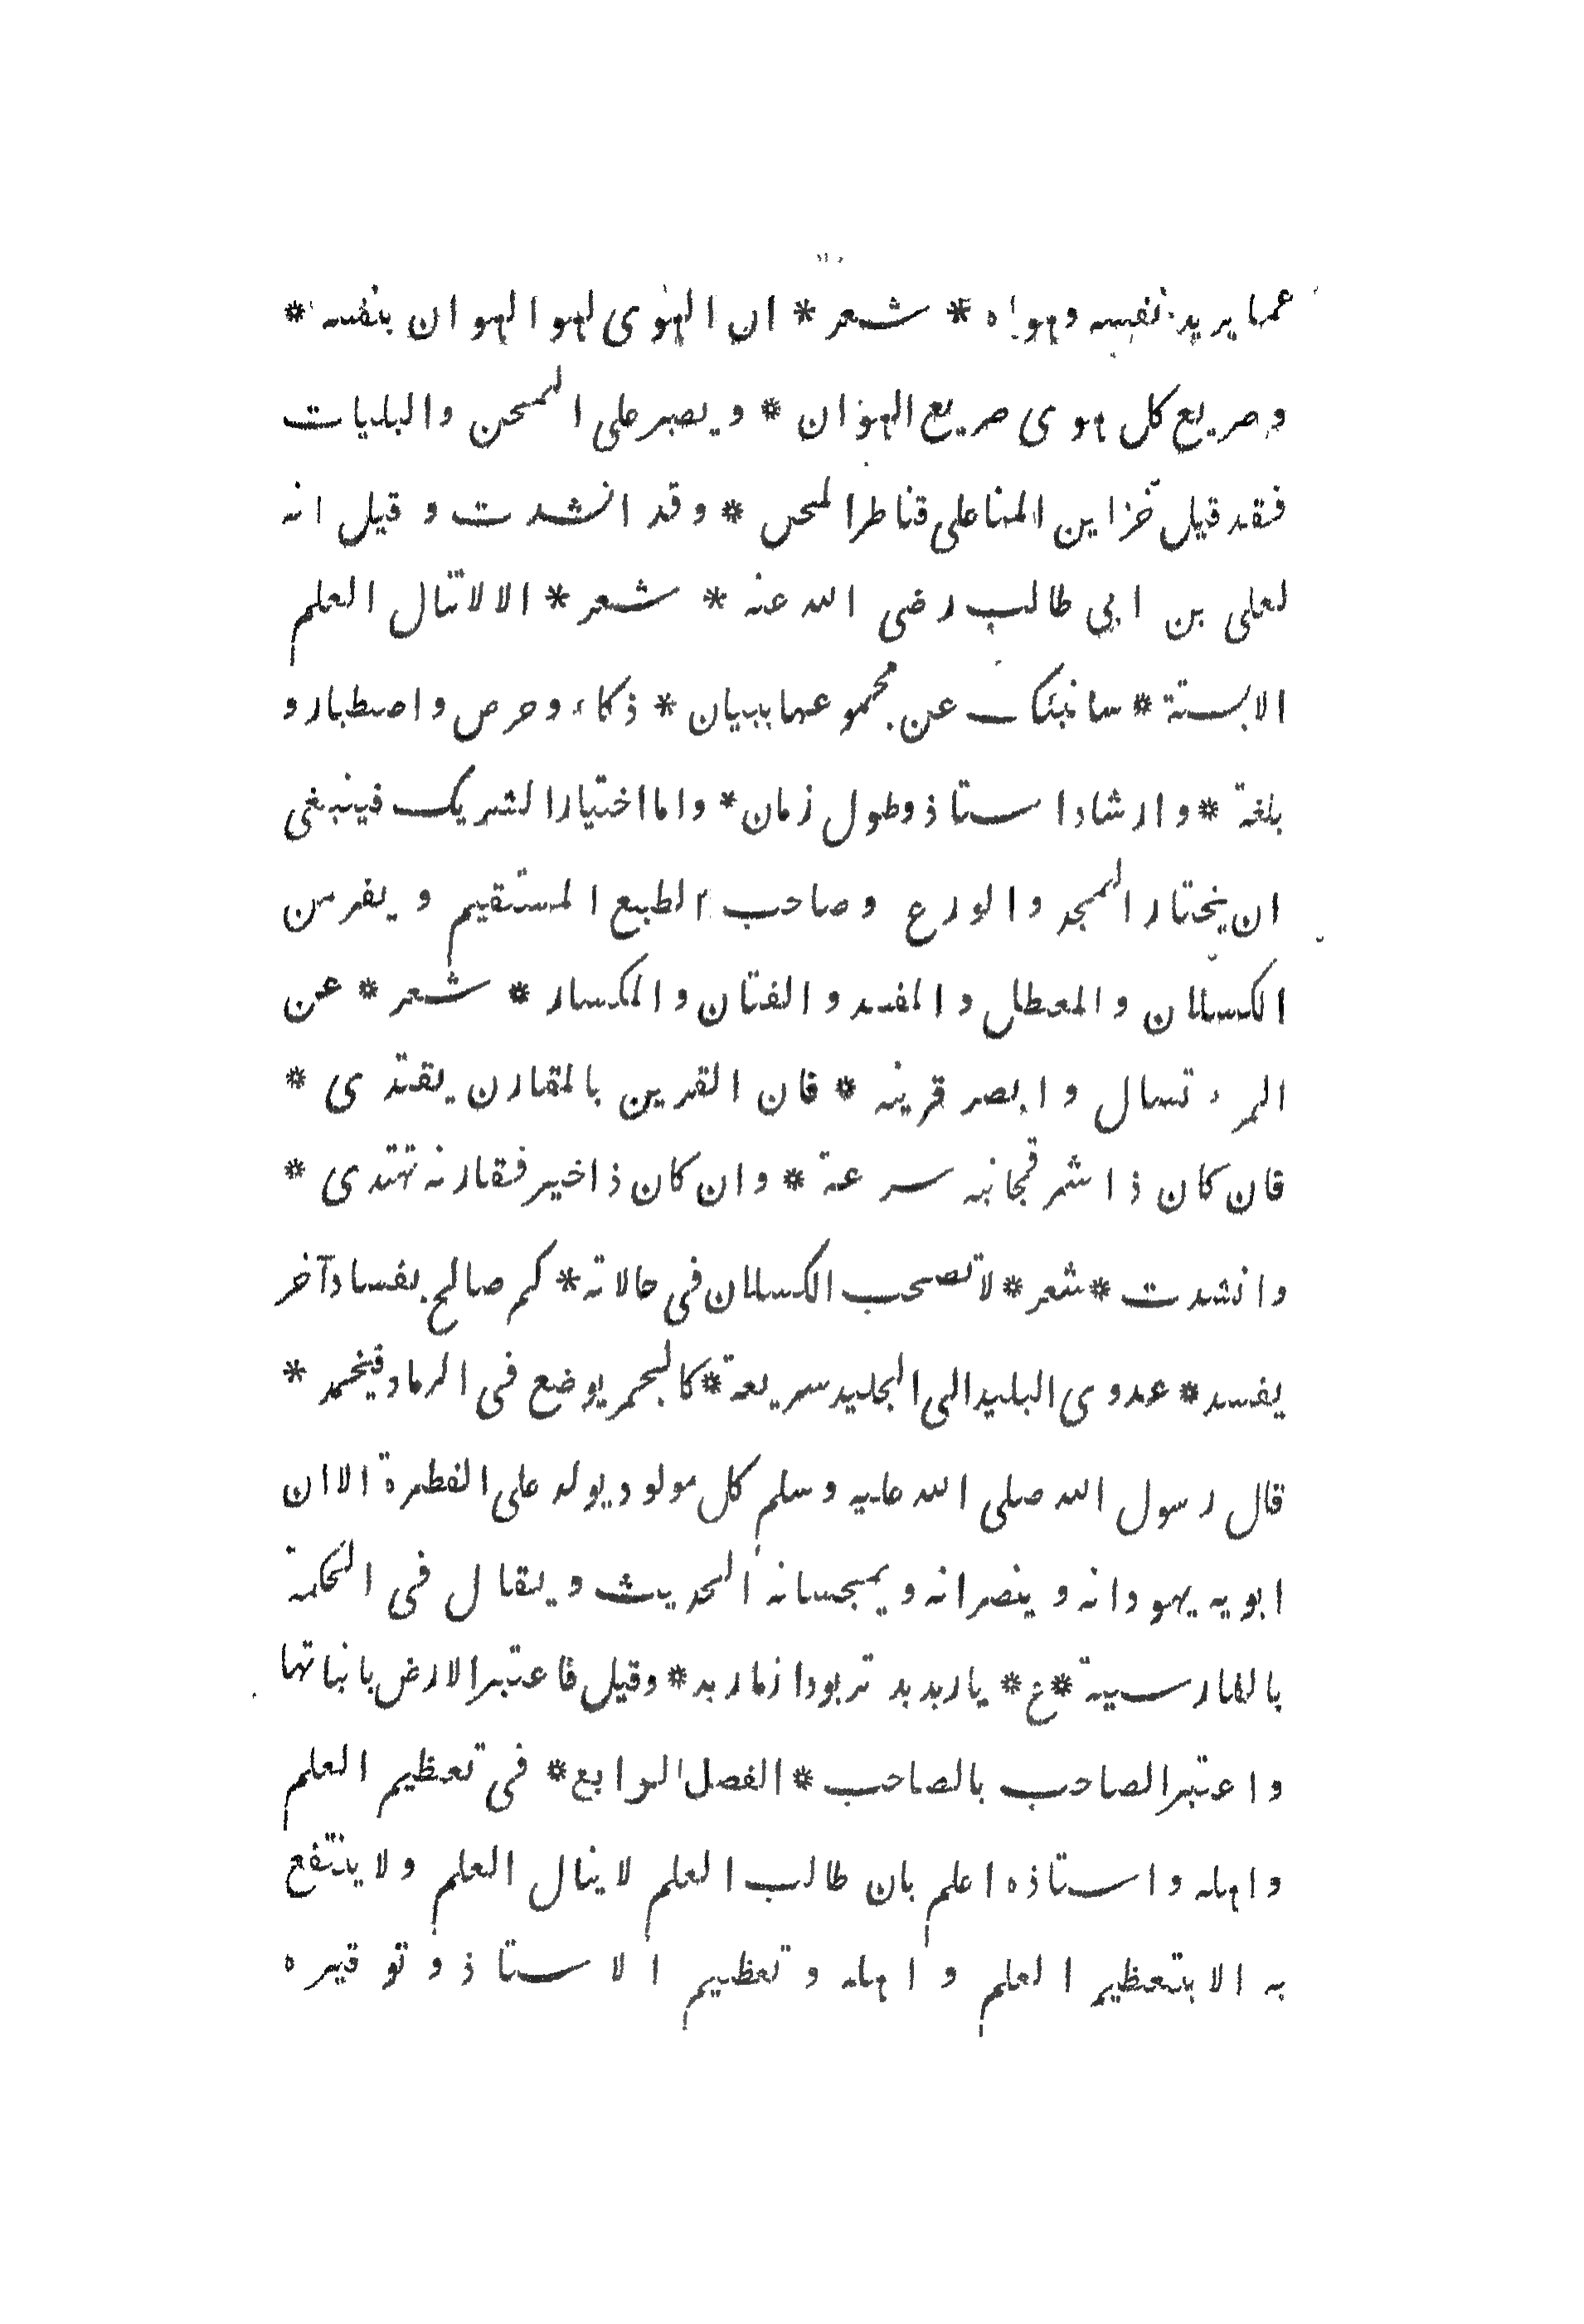 عما يريد نفسه وهواه * شعر * ان الهوى لهو الهوان بنفسه *
وصريع كل هوى صريع الهوان * ويصبر على المحن والبليات
فقد قيل خزاين المنا على قناطر المحن * وقد انشدت وقيل انه
لعلي بن ابي طالب رضى الله عنه * شعر * الا لا تنال العلم
الا بستة * سانبئك عن مجموعها ببيان * ذكاء وحرص واصطبار و
بلغة * وارشاد استاذ وطول زمان * واما اختيار الشريك فينبغى
ان يختار المجد والورع وصاحب الطبع المستقيم ويفر من
الكسلان والمعطل والمفسد والفتان والمكسار * شعر * عن
المرء تسال وابصر قرينه * فان القرين بالمقارن يقتدى *
فان كان ذا شر فجانبه سرعة * وان كان ذا خير فقارنه تهتدى *
وانشدت * شعر * لا تصحب الكسلان فى حالاته * كم صالح بفساد آخر
يفسد * عدوى البليد الى الجليد سريعة * كالجمر يوضع فى الرماد فيخمد *
قال رسول الله صلى الله عليه وسلم كل مولود يولد على الفطرة الا ان
ابويه يهودانه وينصرانه ويمجسانه الحديث ويقال فى الحكمة
بالفارسية * ع * يار بد بدتر بود از مار بد * وقيل فاعتبر الارض بانباتها
واعتبر الصاحب بالصاحب * الفصل الرابع * فى تعظيم العلم
واهله واستاذه اعلم بان طالب العلم لا ينال العلم ولا ينتفع
به الا بتعظيم العلم واهله وتعظيم الاستاذ وتوقيره